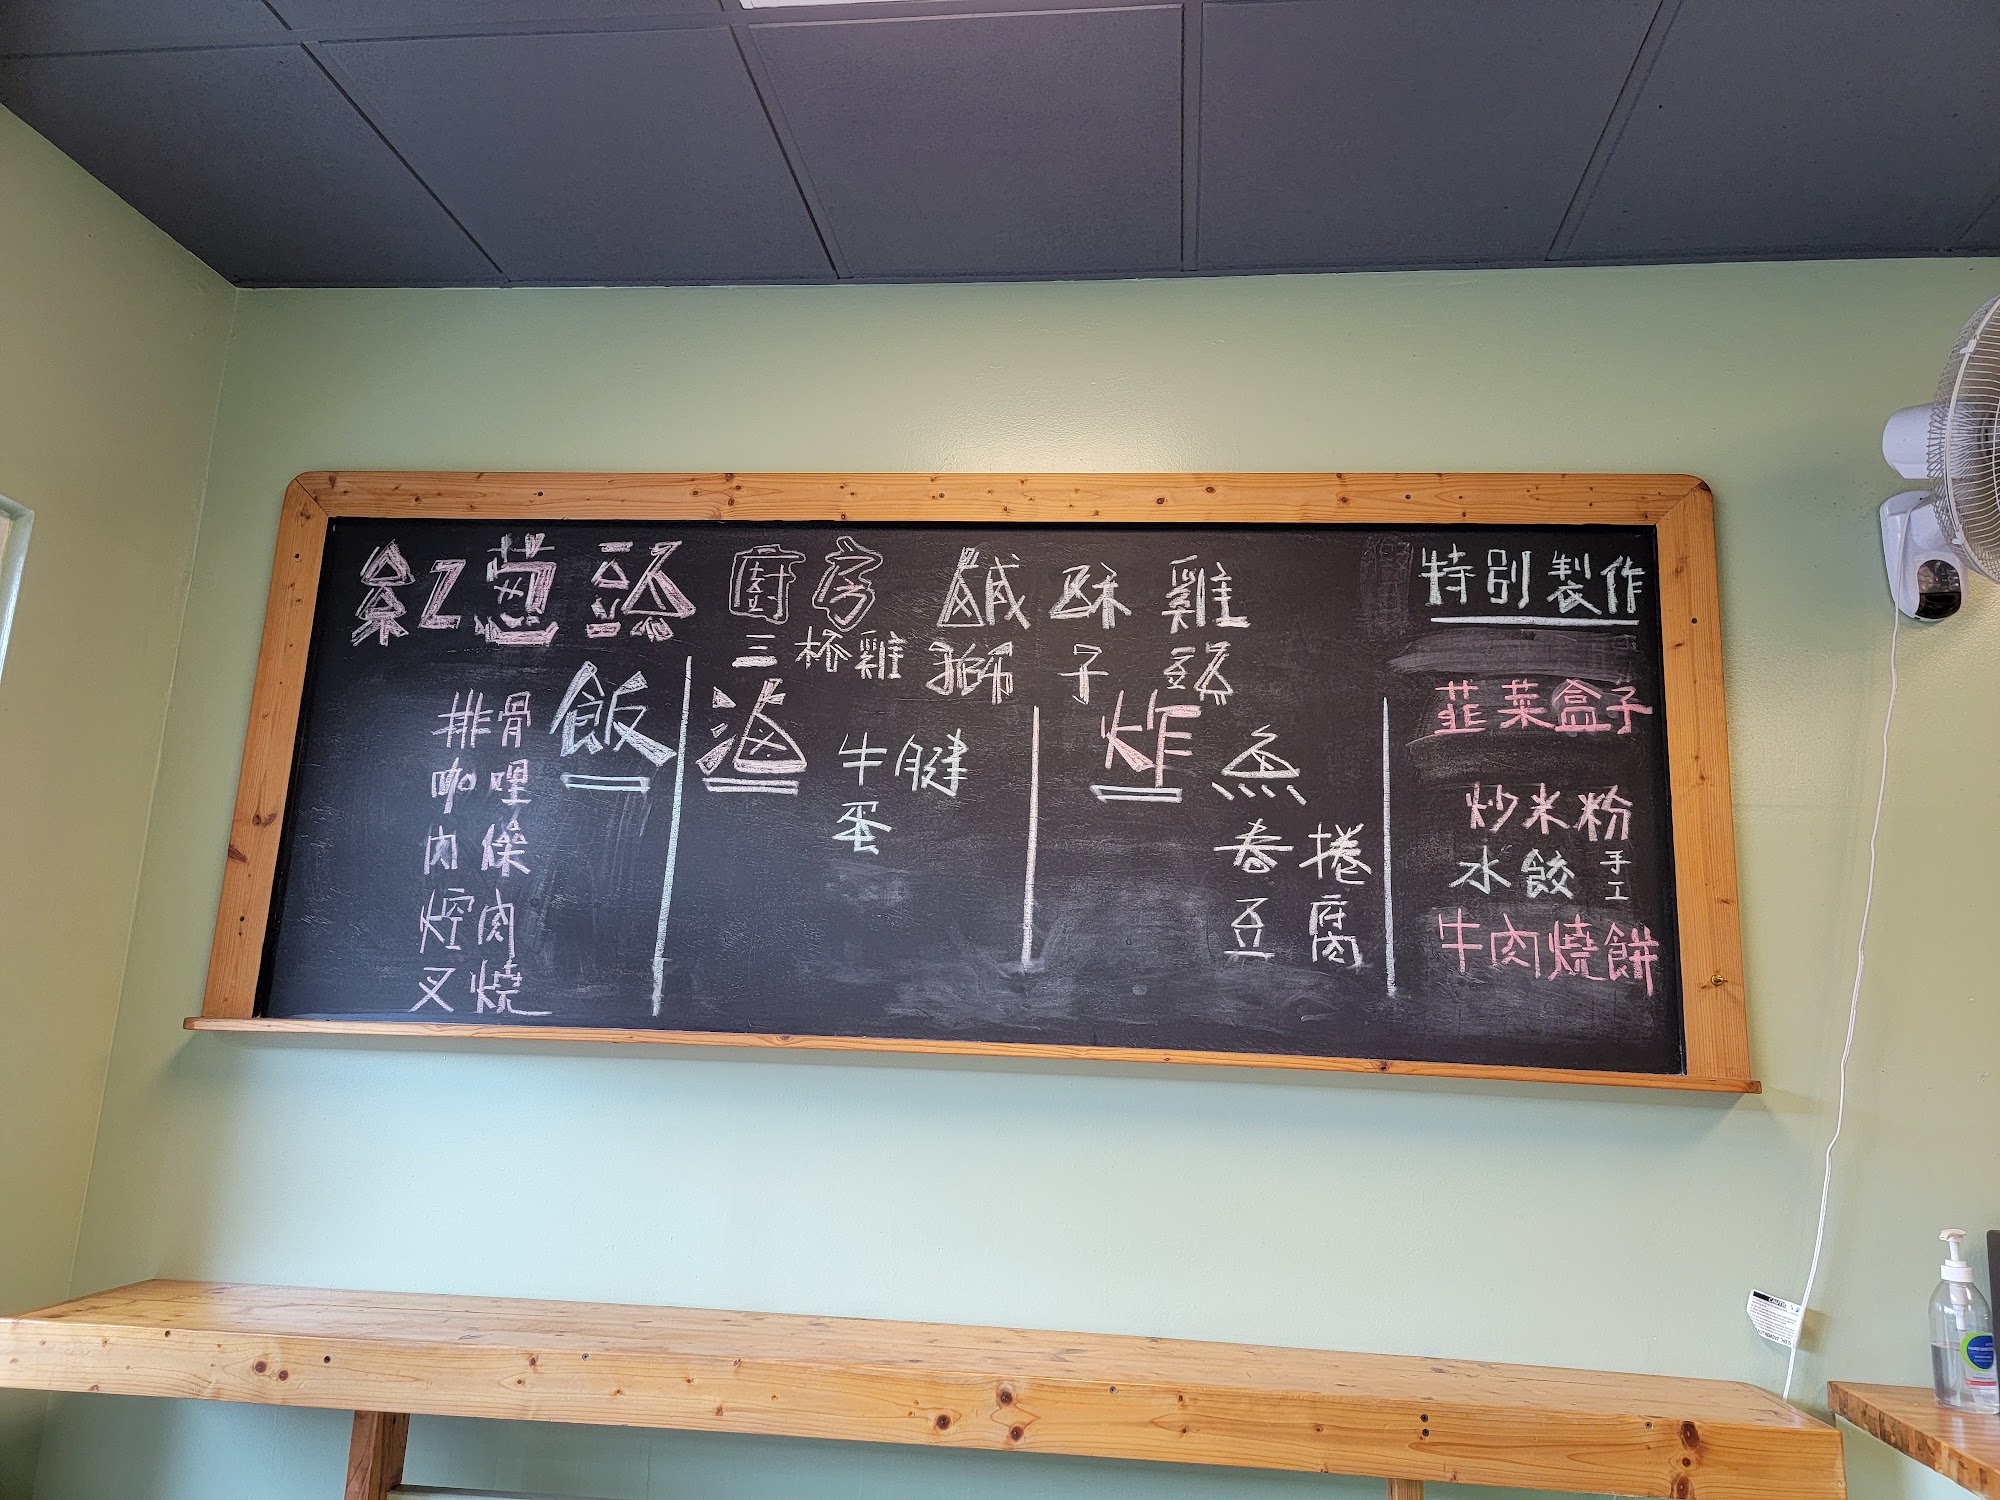 紅葱頭 廚房 鹹酥雞
三杯雞 獅子頭
飯
排骨
咖哩
肉燥
焢肉
叉燒
滷
牛腱
蛋
炸
魚
春捲
豆腐
特別製作
韮菜盒子
炒米粉
水餃 手工
牛肉燒餅
CAUTION